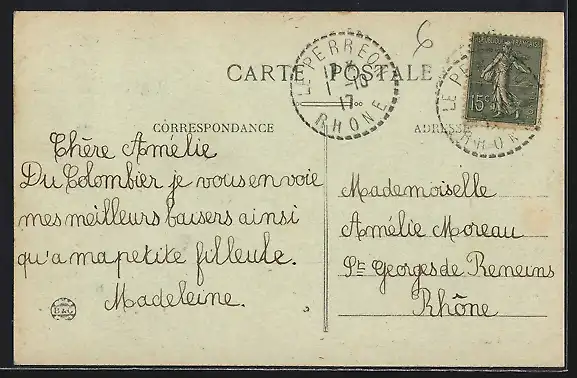 6
CARTE POSTALE
LE PERREO
1-10
17
RHONE
REPUBLIQUE FRANÇAISE
15c
LE PE
RHONE
CORRESPONDANCE
ADRESSE
Chère Amélie
Du Colombier je vous envoie
mes meilleurs baisers ainsi
qu'a ma petite filleule.
Madeleine.
Mademoiselle
Amélie Moreau
St Georges de Reneins
Rhône
B&G